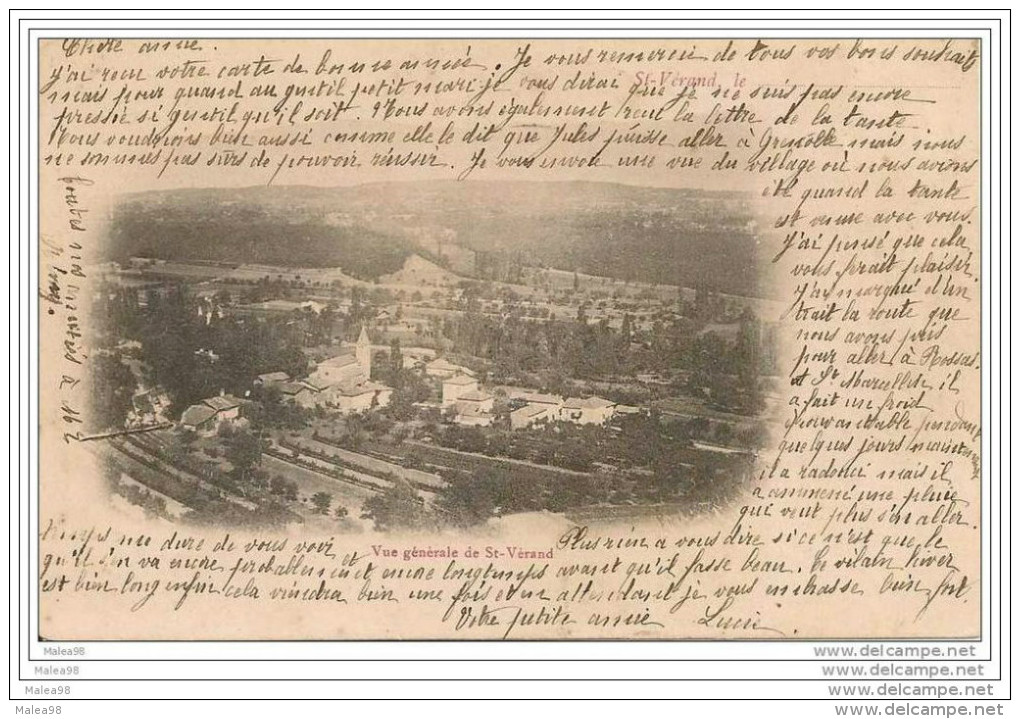 Chère amie.
J'ai reçu votre carte de bonne année. Je vous remercie de tous vos bons souhaits
St-Vérand, le
mais pour quand au gentil petit mari je vous dirai que je ne suis pas encore
pressée si gentil qu'il soit. Nous avons également reçu la lettre de la tante
Nous voudrions bien aussi comme elle le dit que Jules puisse aller à Grenoble mais nous
ne sommes pas surs de pouvoir réussir. Je vous envoie une vue du village où nous avions
été quand la tante
est venue avec vous.
J'ai pensé que cela
vous ferait plaisir
J'ai marqué d'un
trait la route que
nous avons pris
pour aller à Rossas
et St Marcellin, il
a fait un froid
pendant
quelques jours maintenant
il a radouci mais il
a ammené une pluie
qui veut plus s'en aller.
Plus rien a vous dire si ce n'est que le
temps me dure de vous voir et
qu'il s'en va encore probablement encore longtemps avant qu'il fasse beau. Ce vilain hiver
est bien long enfin cela viendra bien une fois et en attendant je vous embrasse bien fort.
Votre petite amie Lucie
Vue générale de St-Vérand
Malea98
www.delcampe.net
Malea98
www.delcampe.net
Malea98
www.delcampe.net
Malea98
www.delcampe.net